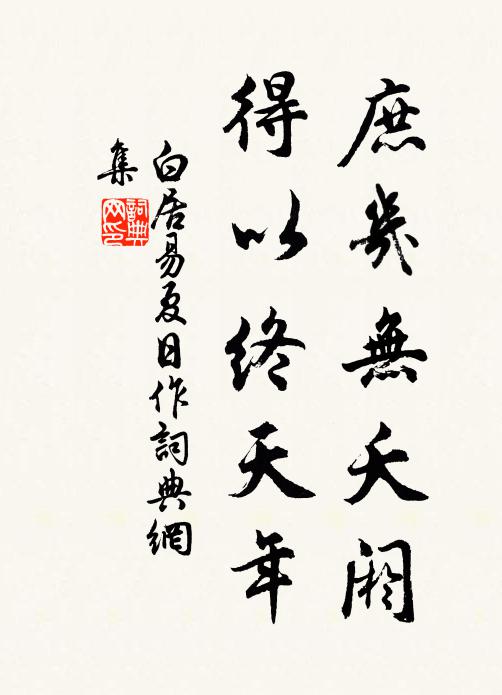 庶幾無夭阏
得以終天年
白居易夏日作詞典網
集
詞典網印